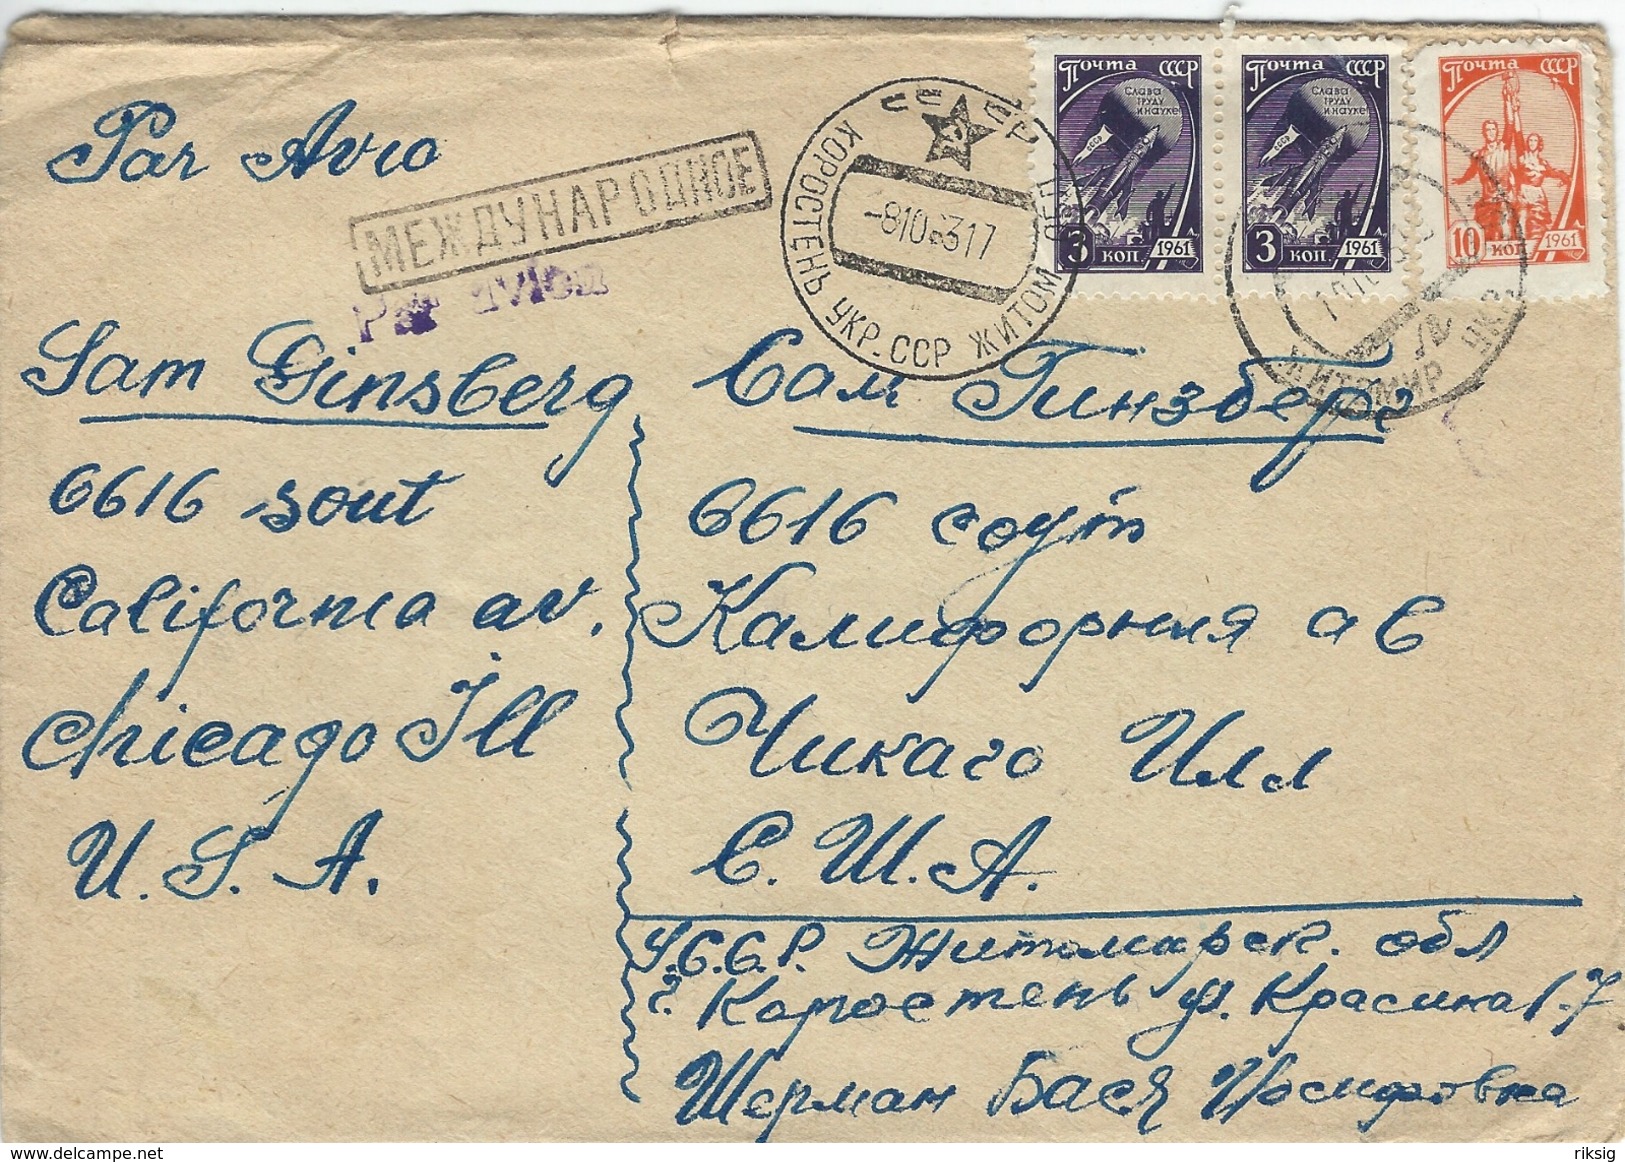 Par Avio
МЕЖДУНАРОДНОЕ
Par avion
КОРОСТЕНЬ УКР. ССР ЖИТОМ
-810 6317
Почта СССР
Слава
труду
и науке!
СССР
3 коп 1961
Почта СССР
Слава
труду
и науке!
СССР
3 коп 1961
Почта СССР
10 коп 1961
ЖИТОМИР УКР.
Sam Ginsberg
6616 sout
California av.
Chicago Ill
U.S.A.
Сам Гинзберг
6616 соут
Калифорния ав
Чикаго Илл
С.Ш.А.
У.С.С.Р. Житомирск. обл
г. Коростень ул. Красина 1-7
Шерман Бася Иосифовна
riksig
delcampe.net